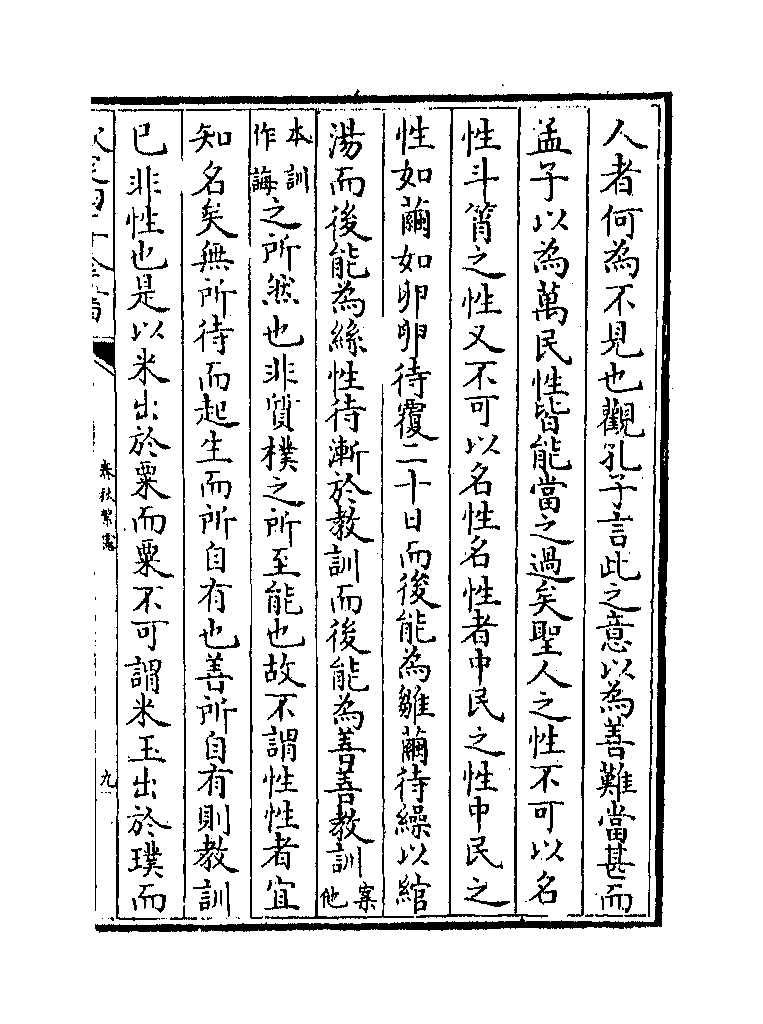 人者何為不見也觀孔子言此之意以為善難當甚而
孟子以為萬民性皆能當之過矣聖人之性不可以名
性斗筲之性又不可以名性名性者中民之性中民之
性如繭如卵卵待覆二十日而後能為雛繭待繰以綰
湯而後能為絲性待漸於教訓而後能為善善教訓案他
本訓作誨之所然也非質樸之所至能也故不謂性性者宜
知名矣無所待而起生而所自有也善所自有則教訓
已非性也是以米出於粟而粟不可謂米玉出於璞而
春秋繁露
九